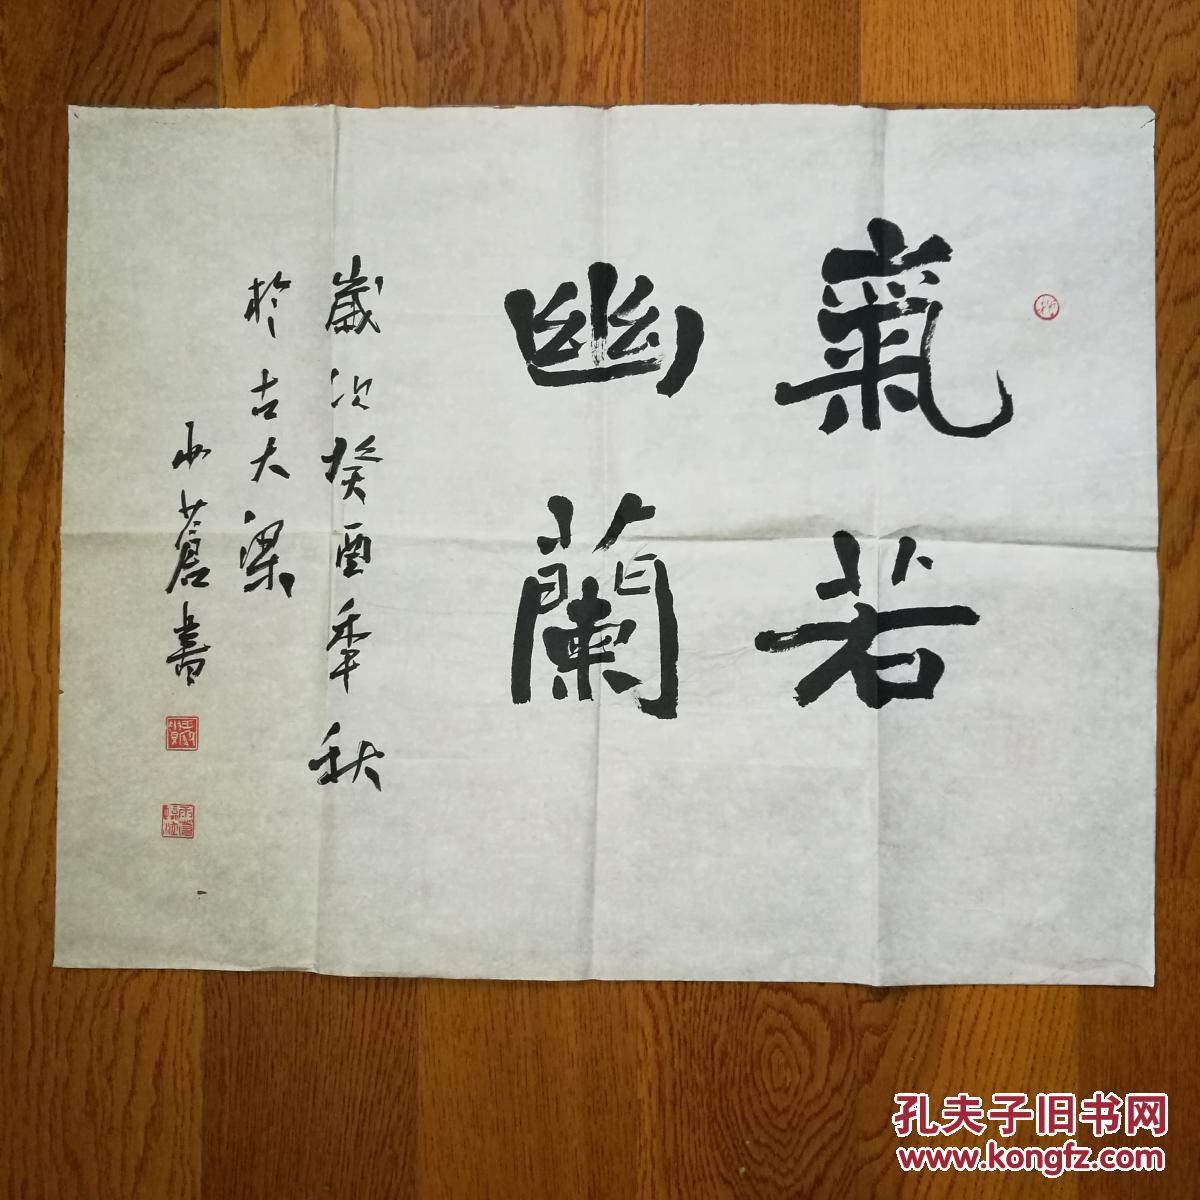 氣若
幽蘭
歲次癸酉年秋
於古大梁
雨蒼書
孔夫子旧书网
www.kongfz.com